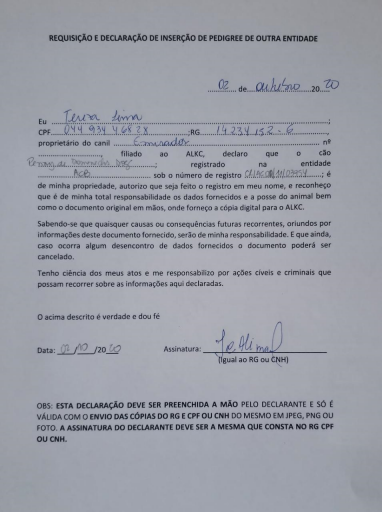 REQUISIÇÃO E DECLARAÇÃO DE INSERÇÃO DE PEDIGREE DE OUTRA ENTIDADE
02 de outubro 2020
Eu Teresa Lima ;
CPF ;RG
proprietário do canil nº
, filiado ao ALKC, declaro que o cão
; registrado na entidade
sob o número de registro ; é
de minha propriedade, autorizo que seja feito o registro em meu nome, e reconheço
que é de minha total responsabilidade os dados fornecidos e a posse do animal bem
como o documento original em mãos, onde forneço a cópia digital para o ALKC.
Sabendo-se que quaisquer causas ou consequências futuras recorrentes, oriundos por
informações deste documento fornecido, serão de minha responsabilidade. E que ainda,
caso ocorra algum desencontro de dados fornecidos o documento poderá ser
cancelado.
Tenho ciência dos meus atos e me responsabilizo por ações cíveis e criminais que
possam recorrer sobre as informações aqui declaradas.
O acima descrito é verdade e dou fé
Data: 02/10/2020 Assinatura:
(Igual ao RG ou CNH)
OBS: ESTA DECLARAÇÃO DEVE SER PREENCHIDA A MÃO PELO DECLARANTE E SÓ É
VÁLIDA COM O ENVIO DAS CÓPIAS DO RG E CPF OU CNH DO MESMO EM JPEG, PNG OU
FOTO. A ASSINATURA DO DECLARANTE DEVE SER A MESMA QUE CONSTA NO RG CPF
OU CNH.